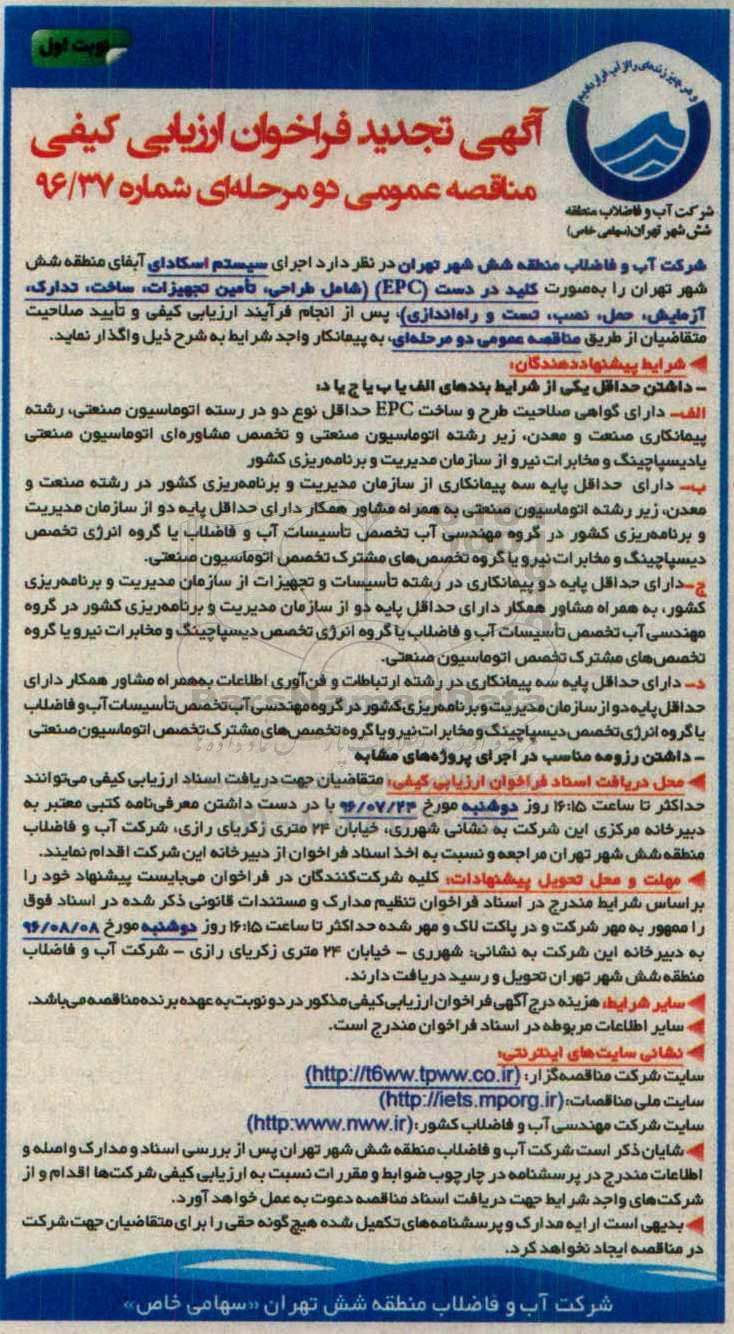 نوبت اول
و من‌ هر چیز زنده‌ای را از آب قرار دادیم
آگهی تجدید فراخوان ارزیابی کیفی
مناقصه عمومی دو مرحله‌ای شماره ۹۶/۳۷
شرکت آب و فاضلاب منطقه
شش شهر تهران(سهامی خاص)
شرکت آب و فاضلاب منطقه شش شهر تهران در نظر دارد اجرای سیستم اسکادای آبفای منطقه شش
شهر تهران را به‌صورت کلید در دست (EPC) (شامل طراحی، تأمین تجهیزات، ساخت، تدارک،
آزمایش، حمل، نصب، تست و راه‌اندازی)، پس از انجام فرآیند ارزیابی کیفی و تأیید صلاحیت
متقاضیان از طریق مناقصه عمومی دو مرحله‌ای، به پیمانکار واجد شرایط به شرح ذیل واگذار نماید.
شرایط پیشنهاددهندگان:
– داشتن حداقل یکی از شرایط بندهای الف یا ب یا ج یا د:
الف– دارای گواهی صلاحیت طرح و ساخت EPC حداقل نوع دو در رسته اتوماسیون صنعتی، رشته
پیمانکاری صنعت و معدن، زیر رشته اتوماسیون صنعتی و تخصص مشاوره‌ای اتوماسیون صنعتی
یادیسپاچینگ و مخابرات نیرو از سازمان مدیریت و برنامه‌ریزی کشور
ب– دارای حداقل پایه سه پیمانکاری از سازمان مدیریت و برنامه‌ریزی کشور در رشته صنعت و
معدن، زیر رشته اتوماسیون صنعتی به همراه مشاور همکار دارای حداقل پایه دو از سازمان مدیریت
و برنامه‌ریزی کشور در گروه مهندسی آب تخصص تأسیسات آب و فاضلاب یا گروه انرژی تخصص
دیسپاچینگ و مخابرات نیرو یا گروه تخصص‌های مشترک تخصص اتوماسیون صنعتی.
ج–دارای حداقل پایه دو پیمانکاری در رشته تأسیسات و تجهیزات از سازمان مدیریت و برنامه‌ریزی
کشور، به همراه مشاور همکار دارای حداقل پایه دو از سازمان مدیریت و برنامه‌ریزی کشور در گروه
مهندسی آب تخصص تأسیسات آب و فاضلاب یا گروه انرژی تخصص دیسپاچینگ و مخابرات نیرو یا گروه
تخصص‌های مشترک تخصص اتوماسیون صنعتی.
د– دارای حداقل پایه سه پیمانکاری در رشته ارتباطات و فن‌آوری اطلاعات به‌همراه مشاور همکار دارای
حداقل پایه دو از سازمان مدیریت و برنامه‌ریزی کشور در گروه مهندسی آب تخصص تأسیسات آب و فاضلاب
یا گروه انرژی تخصص دیسپاچینگ و مخابرات نیرو یا گروه تخصص‌های مشترک تخصص اتوماسیون صنعتی
– داشتن رزومه مناسب در اجرای پروژه‌های مشابه
محل دریافت اسناد فراخوان ارزیابی کیفی: متقاضیان جهت دریافت اسناد ارزیابی کیفی می‌توانند
حداکثر تا ساعت ۱۶:۱۵ روز دوشنبه مورخ ۹۶/۰۷/۲۴ با در دست داشتن معرفی‌نامه کتبی معتبر به
دبیرخانه مرکزی این شرکت به نشانی شهرری، خیابان ۲۴ متری زکریای رازی، شرکت آب و فاضلاب
منطقه شش شهر تهران مراجعه و نسبت به اخذ اسناد فراخوان از دبیرخانه این شرکت اقدام نمایند.
مهلت و محل تحویل پیشنهادات: کلیه شرکت‌کنندگان در فراخوان می‌بایست پیشنهاد خود را
براساس شرایط مندرج در اسناد فراخوان تنظیم مدارک و مستندات قانونی ذکر شده در اسناد فوق
را ممهور به مهر شرکت و در پاکت لاک و مهر شده حداکثر تا ساعت ۱۶:۱۵ روز دوشنبه مورخ ۹۶/۰۸/۰۸
به دبیرخانه این شرکت به نشانی: شهرری – خیابان ۲۴ متری زکریای رازی – شرکت آب و فاضلاب
منطقه شش شهر تهران تحویل و رسید دریافت دارند.
سایر شرایط: هزینه درج آگهی فراخوان ارزیابی کیفی مذکور در دو نوبت به عهده برنده مناقصه می‌باشد.
سایر اطلاعات مربوطه در اسناد فراخوان مندرج است.
نشانی سایت‌های اینترنتی:
سایت شرکت مناقصه‌گزار: (http://t6ww.tpww.co.ir)
سایت ملی مناقصات:(http://iets.mporg.ir)
سایت شرکت مهندسی آب و فاضلاب کشور:(http:www.nww.ir)
شایان ذکر است شرکت آب و فاضلاب منطقه شش شهر تهران پس از بررسی اسناد و مدارک واصله و
اطلاعات مندرج در پرسشنامه در چارچوب ضوابط و مقررات نسبت به ارزیابی کیفی شرکت‌ها اقدام و از
شرکت‌های واجد شرایط جهت دریافت اسناد مناقصه دعوت به عمل خواهد آورد.
بدیهی است ارایه مدارک و پرسشنامه‌های تکمیل شده هیچ‌گونه حقی را برای متقاضیان جهت شرکت
در مناقصه ایجاد نخواهد کرد.
شرکت آب و فاضلاب منطقه شش تهران «سهامی خاص»